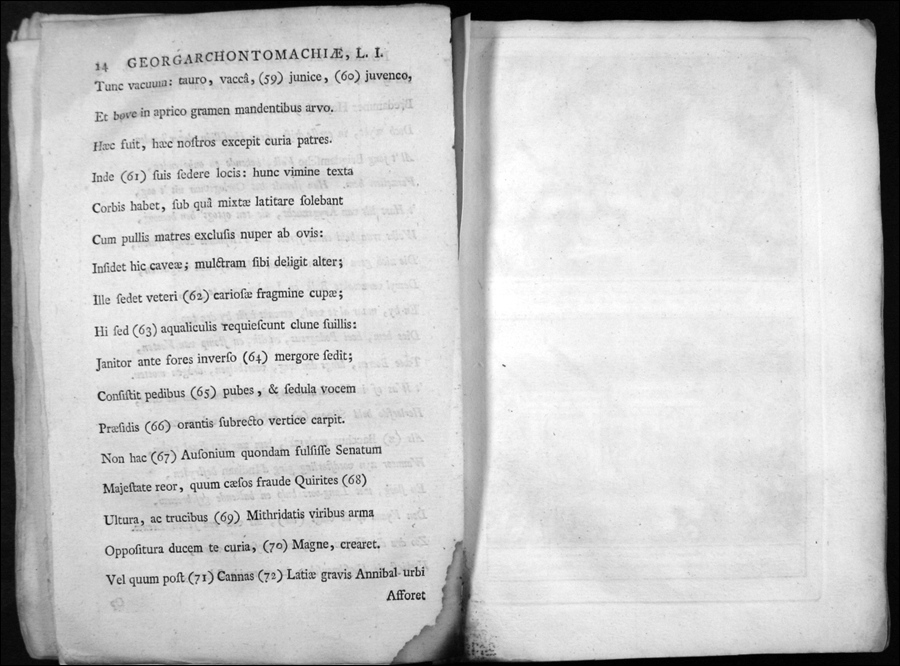 14 GEORGARCHONTOMACHIÆ, L. I.
Tunc vacuum: tauro, vaccâ, (59) junice, (60) juvenco,
Et bove in aprico gramen mandentibus arvo.
Hæc fuit, hæc noſtros excepit curia patres.
Inde (61) ſuis ſedere locis: hunc vimine texta
Corbis habet, ſub quâ mixtæ latitare ſolebant
Cum pullis matres excluſis nuper ab ovis:
Inſidet hic caveæ; mulctram ſibi deligit alter;
Ille ſedet veteri (62) carioſæ fragmine cupæ;
Hi ſed (63) aqualiculis requieſcunt clune ſuillis:
Janitor ante fores inverſo (64) mergore ſedit;
Conſiſtit pedibus (65) pubes, & ſedula vocem
Præſidis (66) orantis ſubrecto vertice carpit.
Non hac (67) Auſonium quondam fulſiſſe Senatum
Majeſtate reor, quum cæſos fraude Quirites (68)
Ultura, ac trucibus (69) Mithridatis viribus arma
Oppoſitura ducem te curia, (70) Magne, crearet.
Vel quum poſt (71) Cannas (72) Latiæ gravis Annibal urbi
Afforet